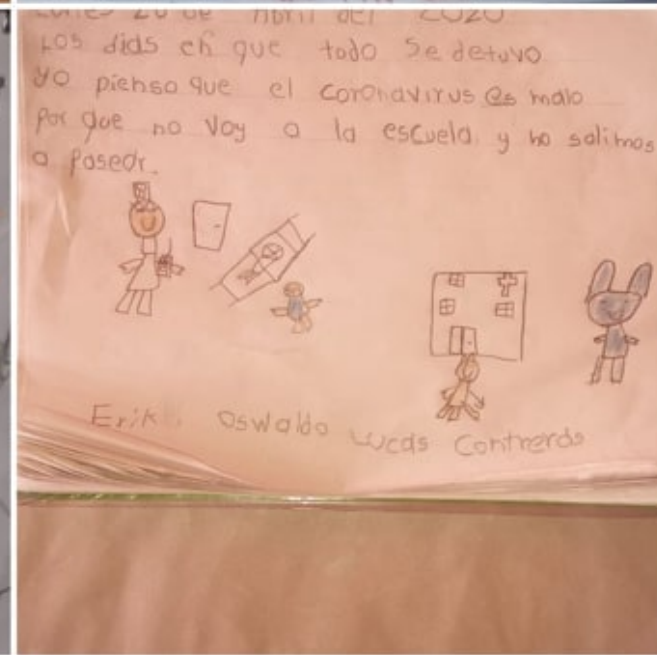 Lunes 20 de Abril del 2020
Los dias en que todo se detuvo
yo pienso que el coronavirus es malo
por que no voy a la escuela y no salimos
a pasear.
Erik Oswaldo Lucas Contreras